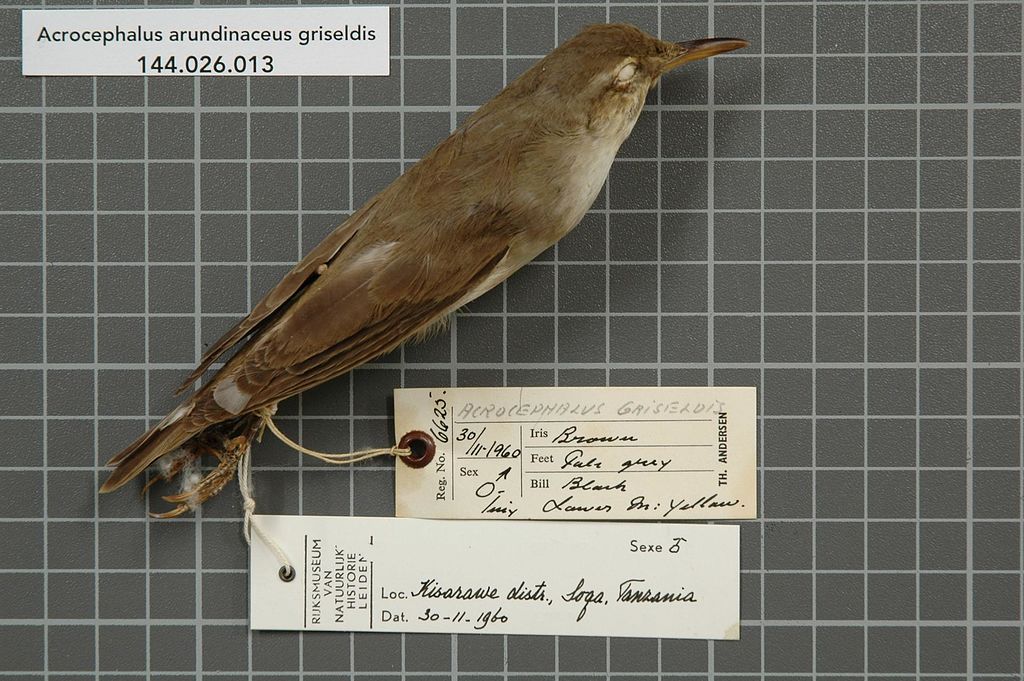 Acrocephalus arundinaceus griseldis
144.026.013
Reg. No. 6625.
ACROCEPHALUS GRISELDIS
30/11-1960
Iris Brown
Sex
Feet Pale grey
Bill Black
Lower M: Yellow.
TH. ANDERSEN
RIJKSMUSEUM
VAN
NATUURLIJKE
HISTORIE
LEIDEN
Sexe ♂
Loc. Kisarawe distr., Soga, Tanzania
Dat. 30-11-1960